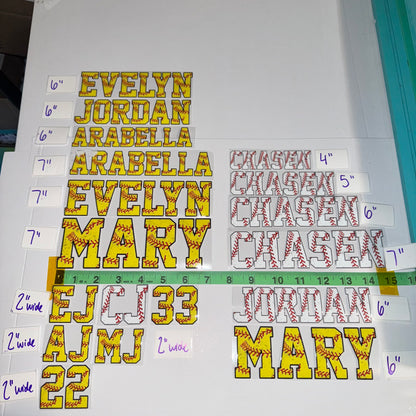 6" EVELYN
6" JORDAN
6" ARABELLA
7" ARABELLA
7" EVELYN
7" MARY
CHASEN 4"
CHASEN 5"
CHASEN 6"
CHASEN 7"
1 2 3 4 5 6 7 8 9 10 11 12 13 14 15
2" wide EJ CJ 33
2" wide AJ MJ 2" wide
2" wide 22
JORDAN 6"
MARY 6"